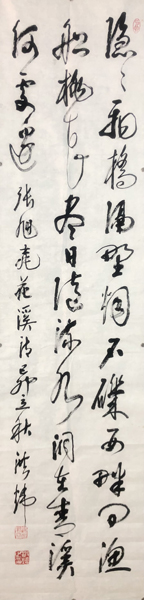 隐〻飛橋隔野烟石磯西畔问渔
船桃花尽日隨流水洞在清溪
何處邊 张旭桃花溪诗 立秋